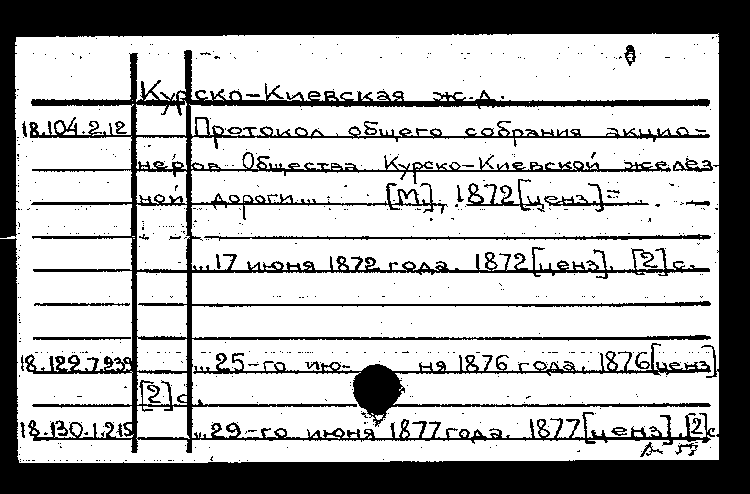 Курско-Киевская ж.д.
18.104.2.12 Протокол общего собрания акцио=
неров Общества Курско-Киевской желез-
ной дороги... [М.], 1872[ценз]=
...17 июня 1872 года. 1872[ценз]. [2]с.
18.129.7.939 ...25-го ию- ня 1876 года. 1876[ценз].
[2]с.
18.130.1.215 ...29-го июня 1877 года. 1877[ценз]. [2]с.